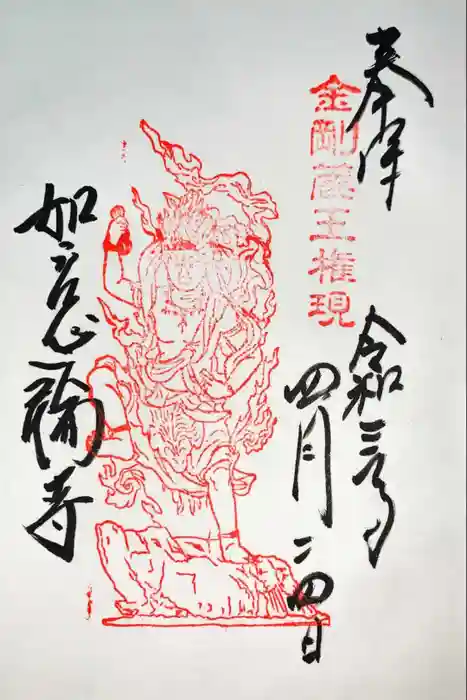 奉拝
金剛蔵王権現
令和三年
四月二四日
如意輪寺